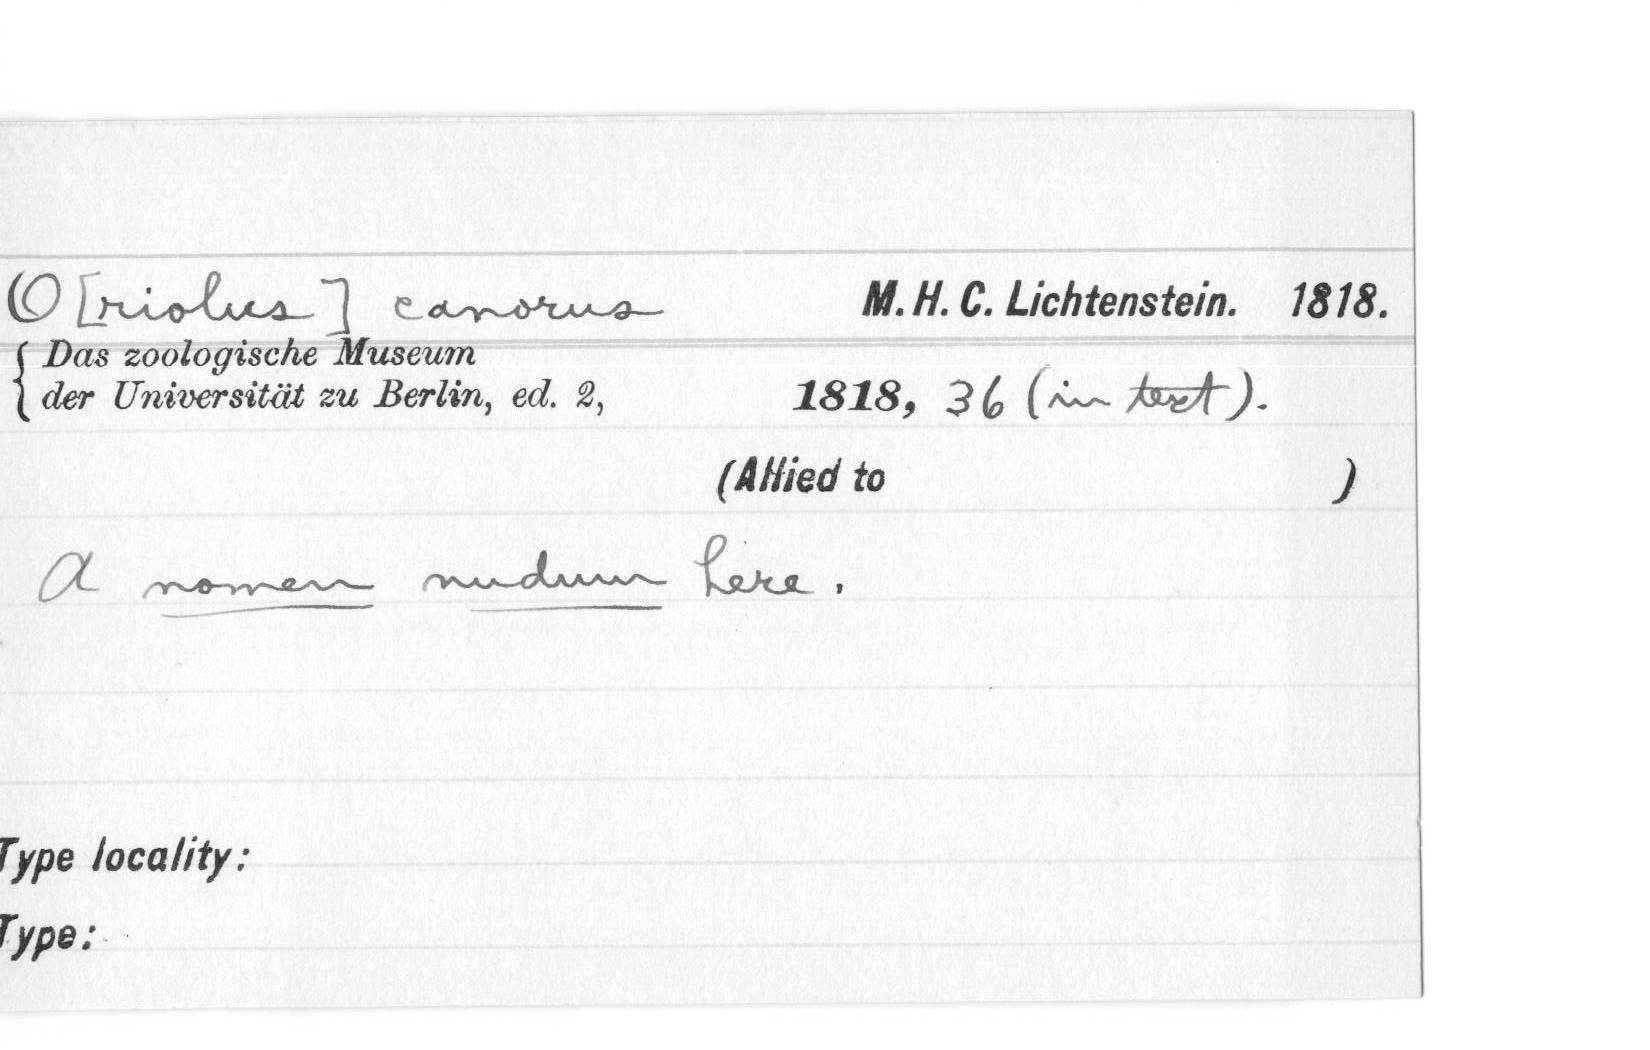 O[riolus] canorus M. H. C. Lichtenstein. 1818.
Das zoologische Museum
der Universität zu Berlin, ed. 2, 1818, 36 (in text).
(Allied to )
A nomen nudum here.
Type locality:
Type: